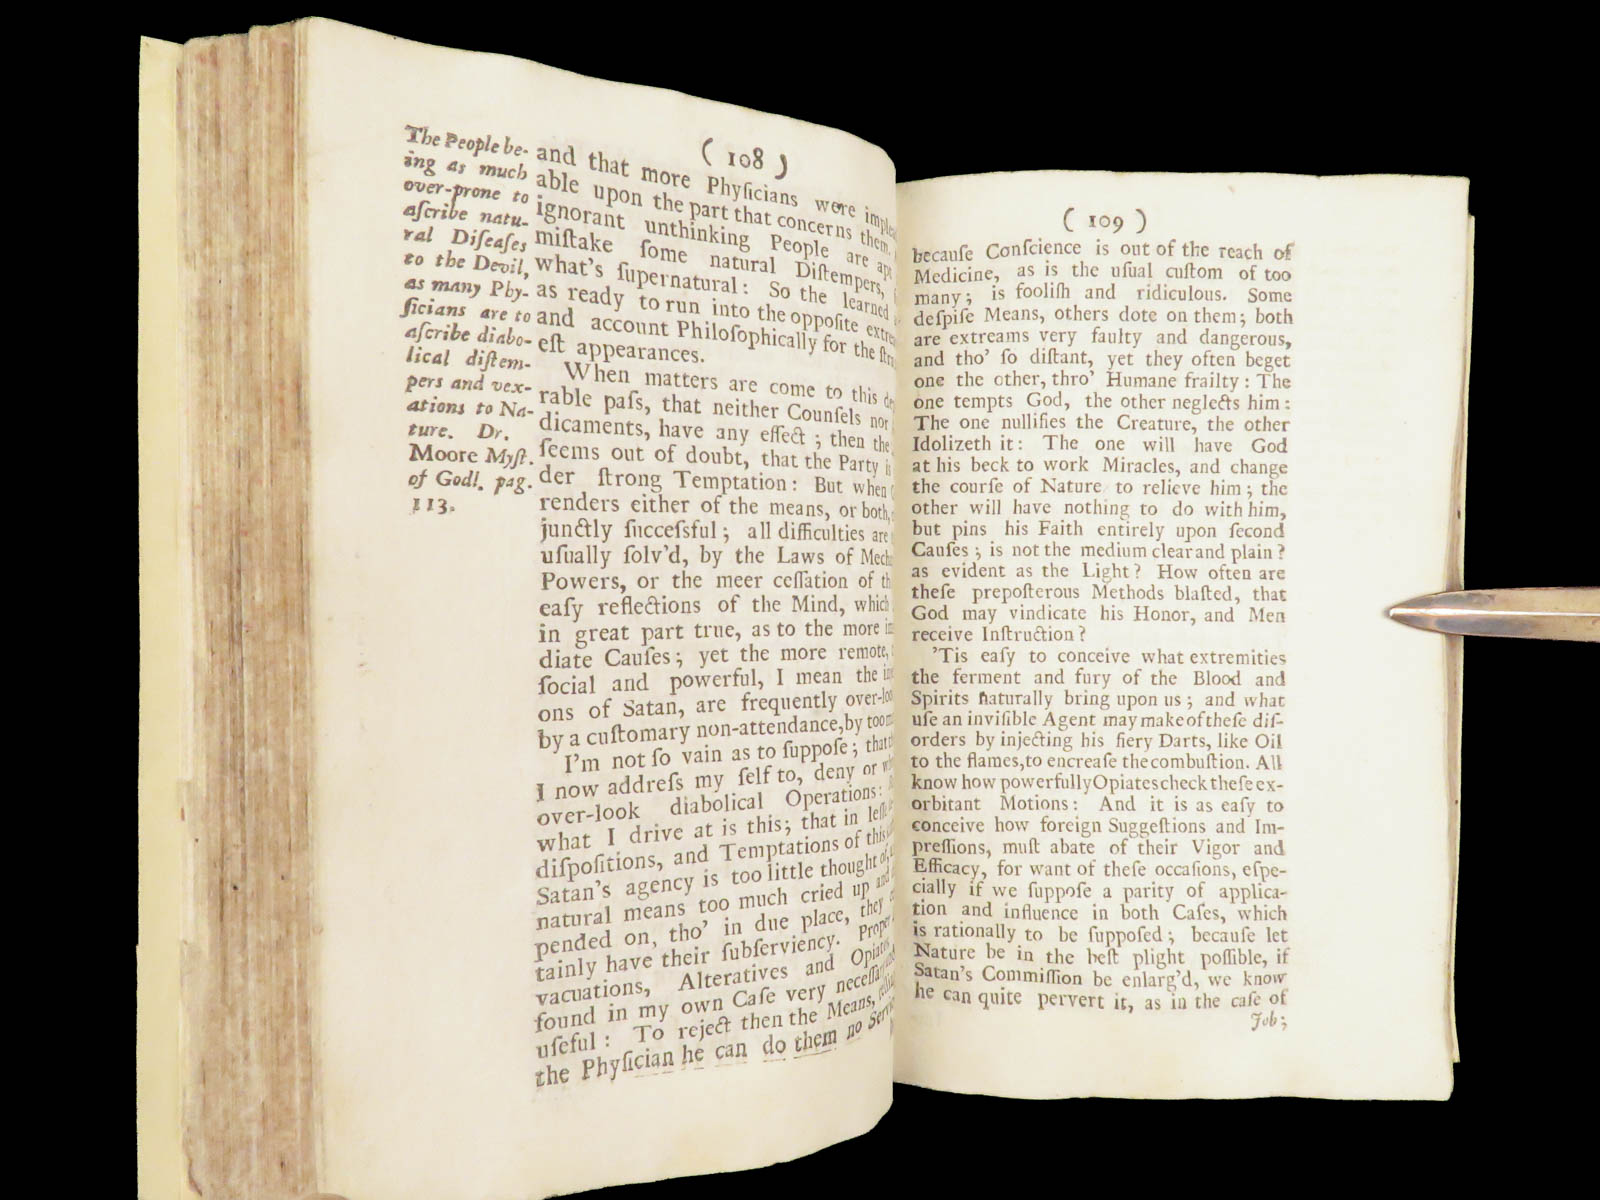 ( 108 )
The People be-
ing as much
over-prone to
aſcribe natu-
ral Diſeaſes
to the Devil,
as many Phy-
ſicians are to
aſcribe diabo-
lical diſtem-
pers and vex-
ations to Na-
ture. Dr.
Moore Myſt.
of Godl. pag.
113.
and that more Phyſicians were
able upon the part that concerns them.
ignorant unthinking People are
miſtake ſome natural Diſtempers,
what's ſupernatural: So the learned
as ready to run into the oppoſite
and account Philoſophically for the
eſt appearances.
When matters are come to this
rable paſs, that neither Counſels nor
dicaments, have any effect; then
ſeems out of doubt, that the Party
der ſtrong Temptation: But when
renders either of the means, or both,
junctly ſucceſsful; all difficulties are
uſually ſolv'd, by the Laws of
Powers, or the meer ceſſation of
eaſy reflections of the Mind, which
in great part true, as to the more
diate Cauſes; yet the more remote,
ſocial and powerful, I mean the
ons of Satan, are frequently
by a cuſtomary non-attendance, by too
I'm not ſo vain as to ſuppoſe; that
I now addreſs my ſelf to, deny or
over-look diabolical Operations:
what I drive at is this; that in
diſpoſitions, and Temptations of this
Satan's agency is too little thought of,
natural means too much cried up and
pended on, tho' in due place, they
tainly have their ſubſerviency. Proper
vacuations, Alteratives and
found in my own Caſe very
uſeful: To reject then the Means,
the Phyſician he can do them no
( 109 )
becauſe Conſcience is out of the reach of
Medicine, as is the uſual cuſtom of too
many; is fooliſh and ridiculous. Some
deſpiſe Means, others dote on them; both
are extreams very faulty and dangerous,
and tho' ſo diſtant, yet they often beget
one the other, thro' Humane frailty: The
one tempts God, the other neglects him:
The one nullifies the Creature, the other
Idolizeth it: The one will have God
at his beck to work Miracles, and change
the courſe of Nature to relieve him; the
other will have nothing to do with him,
but pins his Faith entirely upon ſecond
Cauſes; is not the medium clear and plain?
as evident as the Light? How often are
theſe prepoſterous Methods blaſted, that
God may vindicate his Honor, and Men
receive Inſtruction?
'Tis eaſy to conceive what extremities
the ferment and fury of the Blood and
Spirits naturally bring upon us; and what
uſe an inviſible Agent may make of theſe diſ-
orders by injecting his fiery Darts, like Oil
to the flames, to encreaſe the combuſtion. All
know how powerfully Opiates check theſe ex-
orbitant Motions: And it is as eaſy to
conceive how foreign Suggeſtions and Im-
preſſions, muſt abate of their Vigor and
Efficacy, for want of theſe occaſions, eſpe-
cially if we ſuppoſe a parity of applica-
tion and influence in both Caſes, which
is rationally to be ſuppoſed; becauſe let
Nature be in the beſt plight poſſible, if
Satan's Commiſſion be enlarg'd, we know
he can quite pervert it, as in the caſe of
Job;